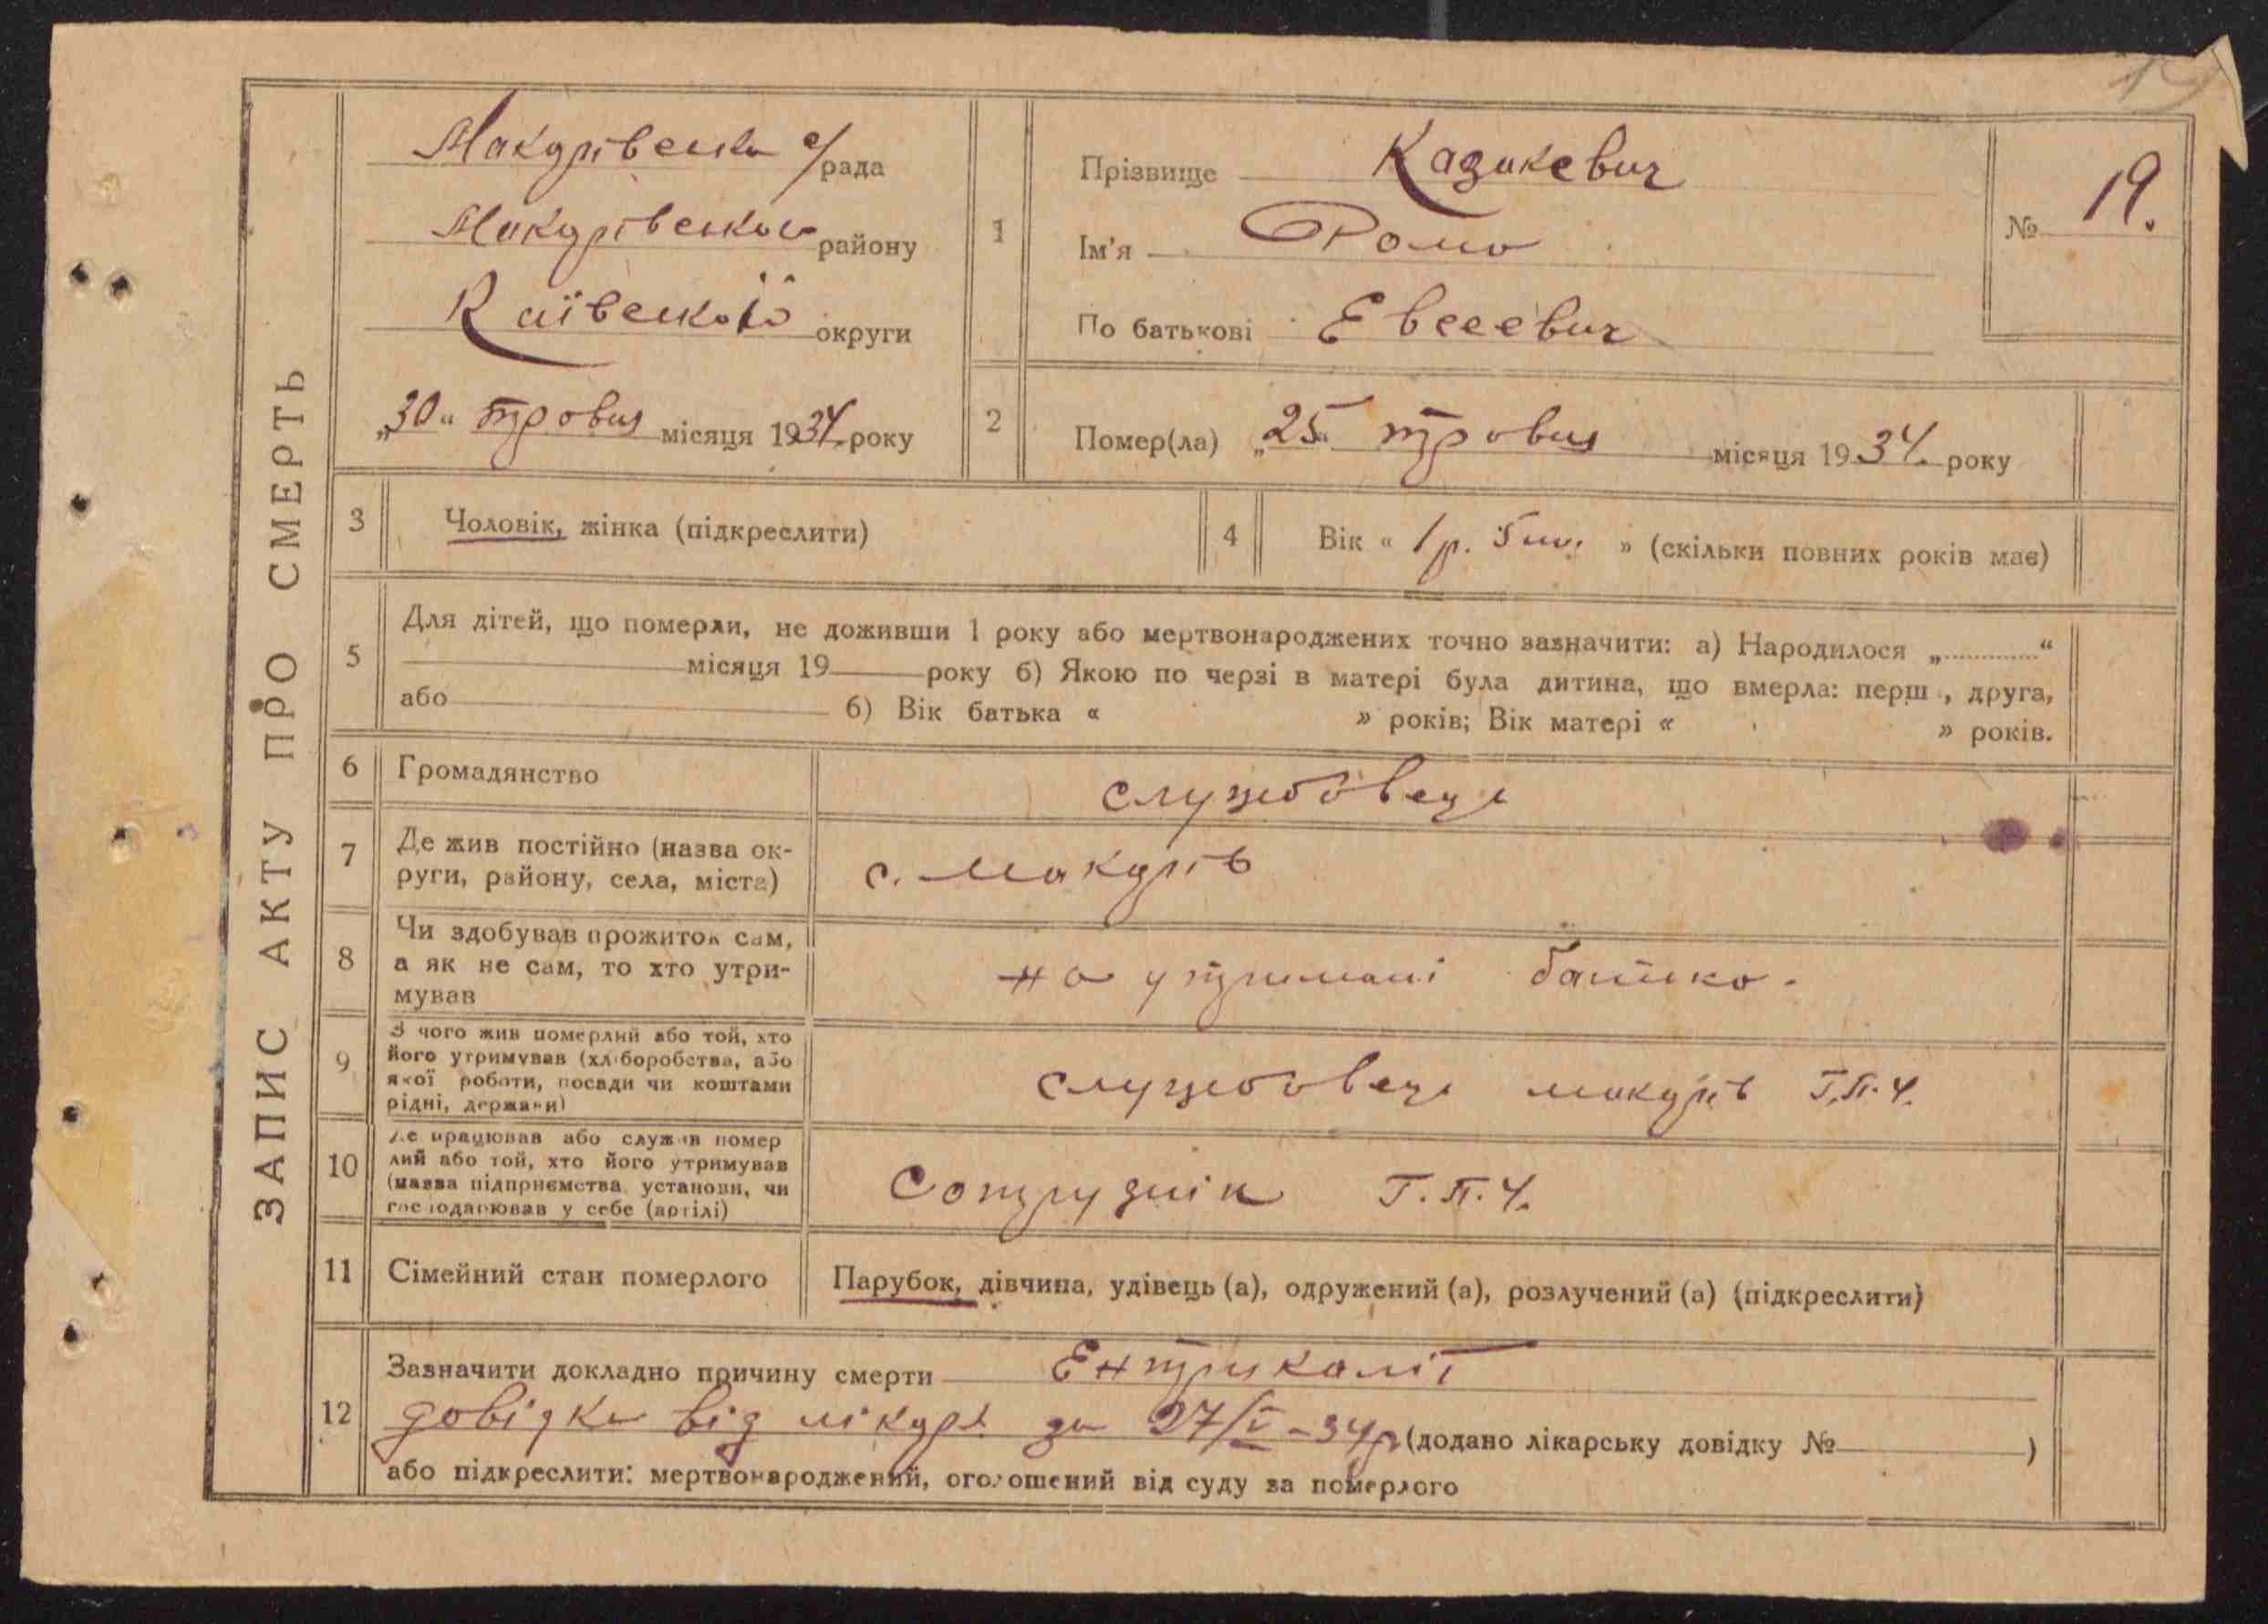 19
ЗАПИС АКТУ ПРО СМЕРТЬ
Макарівська с/рада
Макарівського району
Київської округи
„30“ травня місяця 1934 року
1
Прізвище Казакевич
Ім'я Рома
По батькові Евсеевич
№ 19.
2
Помер(ла) „25“ травня місяця 1934 року
3 Чоловік, жінка (підкреслити)
4 Вік « 1 р. 5 міс. » (скільки повних років має)
5
Для дітей, що померли, не доживши 1 року або мертвонароджених точно зазначити: а) Народилося „ “
місяця 19 року б) Якою по черзі в матері була дитина, що вмерла: перш , друга,
або б) Вік батька « » років; Вік матері « » років.
6 Громадянство службовець
7 Де жив постійно (назва ок-
руги, району, села, міста)
с. Макарів
8
Чи здобував прожиток сам,
а як не сам, то хто утри-
мував
на утримані батька.
9
З чого жив померлий або той, хто
його утримував (хліборобства, або
якої роботи, посади чи коштами
рідні, держави)
службовець макарів Г.П.У.
10
Де працював або служив помер
лий або той, хто його утримував
(назва підприємства, установи, чи
господарював у себе (артілі)
Сотруднік Г.П.У.
11 Сімейний стан померлого
Парубок, дівчина, удівець (а), одружений (а), розлучений (а) (підкреслити)
12
Зазначити докладно причину смерти Ентриколіт
довідка від лікаря за 27/V-34р (додано лікарську довідку № )
або підкреслити: мертвонароджений, оголошений від суду за померлого